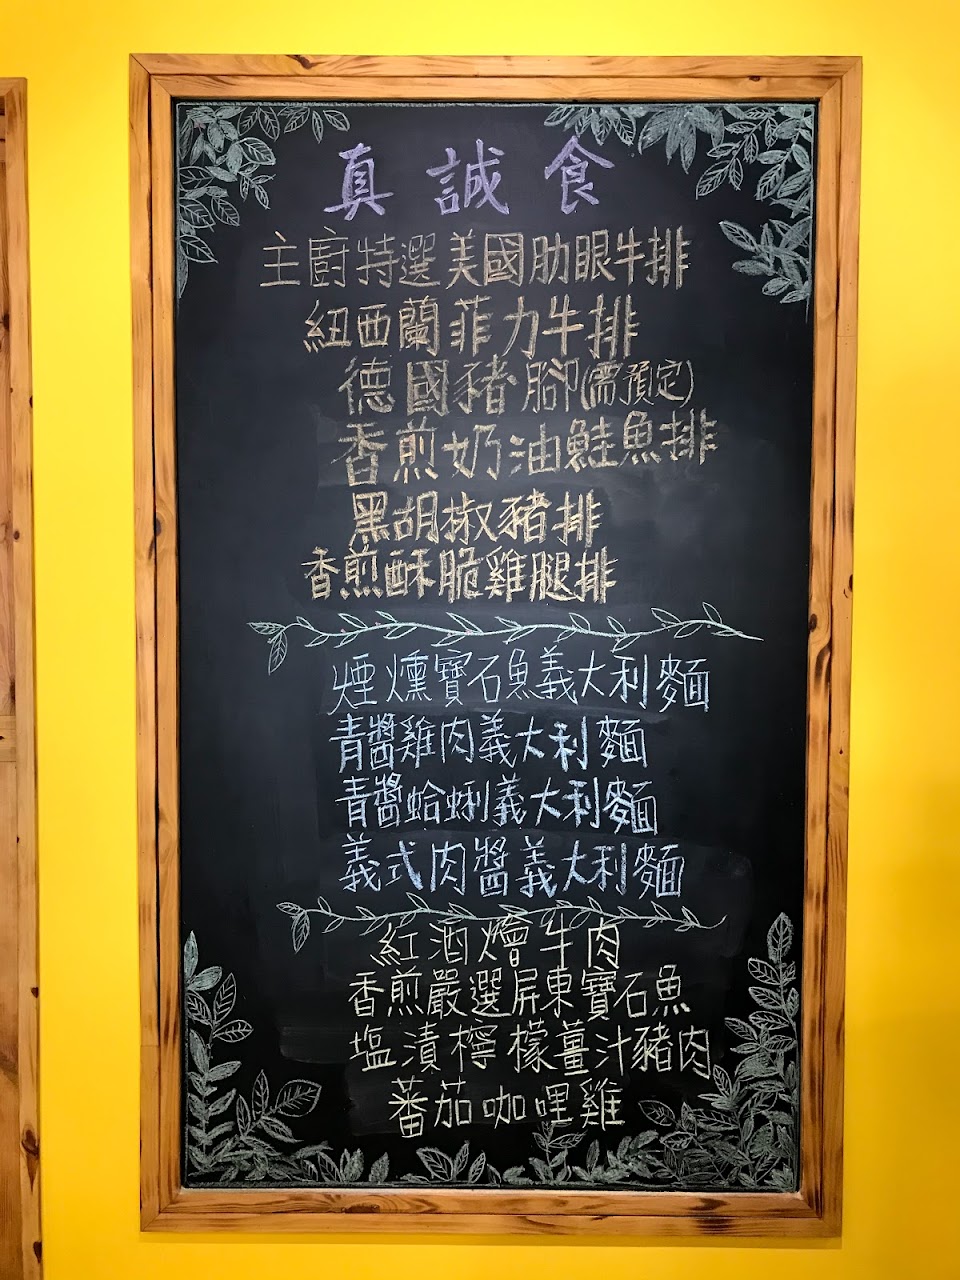 真誠食
主廚特選美國肋眼牛排
紐西蘭菲力牛排
德國豬腳(需預定)
香煎奶油鮭魚排
黑胡椒豬排
香煎酥脆雞腿排
煙燻寶石魚義大利麵
青醬雞肉義大利麵
青醬蛤蜊義大利麵
義式肉醬義大利麵
紅酒燴牛肉
香煎嚴選屏東寶石魚
塩漬檸檬薑汁豬肉
蕃茄咖哩雞